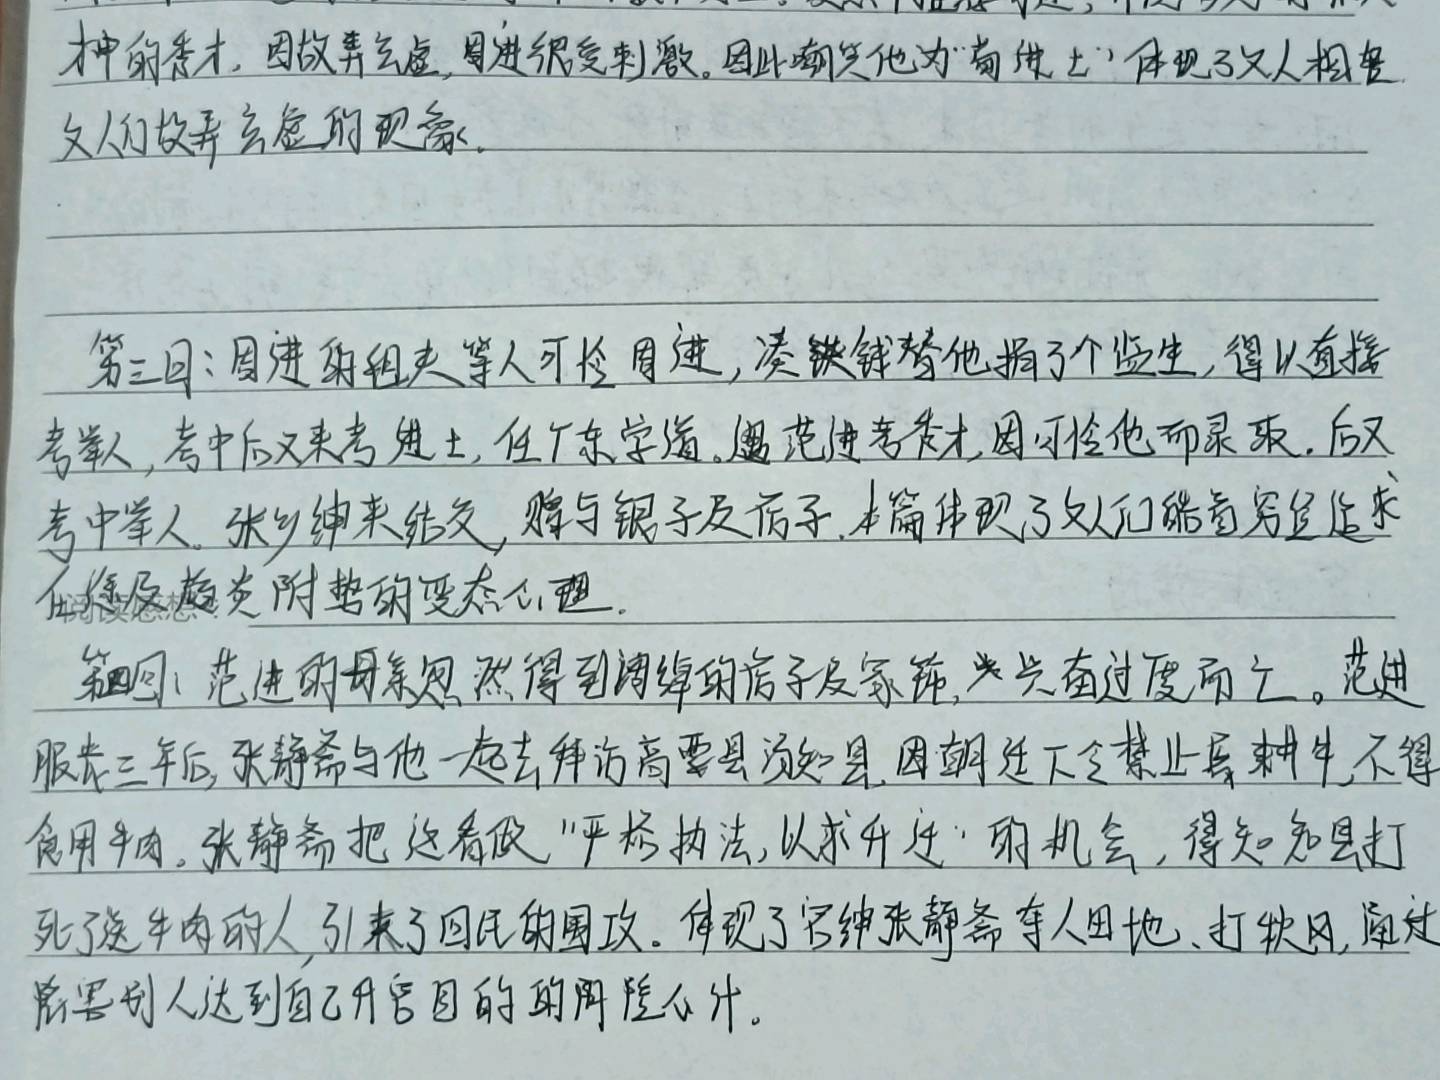 才中的秀才。因故弄玄虚,周进很受刺激。因此嘲笑他为“荀进士”体现了文人相
文人们故弄玄虚的现象。
第三回:周进的姐夫等人可怜周进,凑钱替他捐了个监生,得以直接
考举人,考中后又来考进士,任广东学道。遇范进考秀才,因可怜他而录取。后又
考中举人。张乡绅来结交,赠与银子及房子。本篇体现了文人们皓首穷经追求
仕途及趋炎附势的变态心理。
阅读感想:
第四回:范进的母亲忽然得到阔绰的房子及家饰,兴奋过度而亡。范进
服丧三年后,张静斋与他一起去拜访高要县汤知县,因朝廷下令禁止宰耕牛,不得
食用牛肉。张静斋把这看做“严格执法,以求升迁”的机会,得知知县打
死了送牛肉的人,引来了回民的围攻。体现了官绅张静斋夺人田地、打秋风,通过
陷害别人达到自己升官目的的阴险心计。